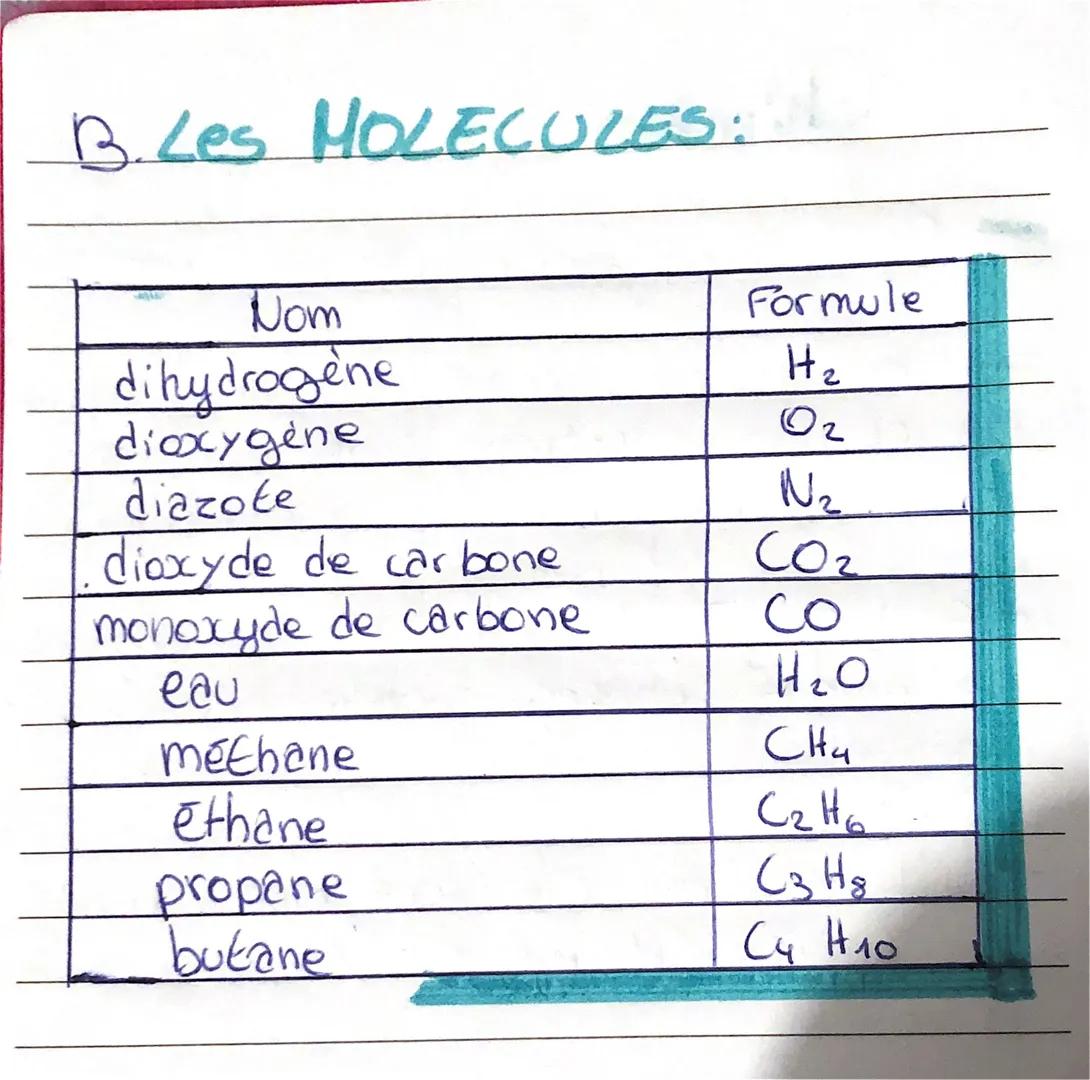 B. Les MOLECULES:
Nom Formule
dihydrogène H₂
dioxygène O₂
diazote N₂
. dioxyde de carbone CO₂
monoxyde de carbone CO
eau H₂O
méthane CH₄
éthane C₂H₆
propane C₃H₈
butane C₄H₁₀